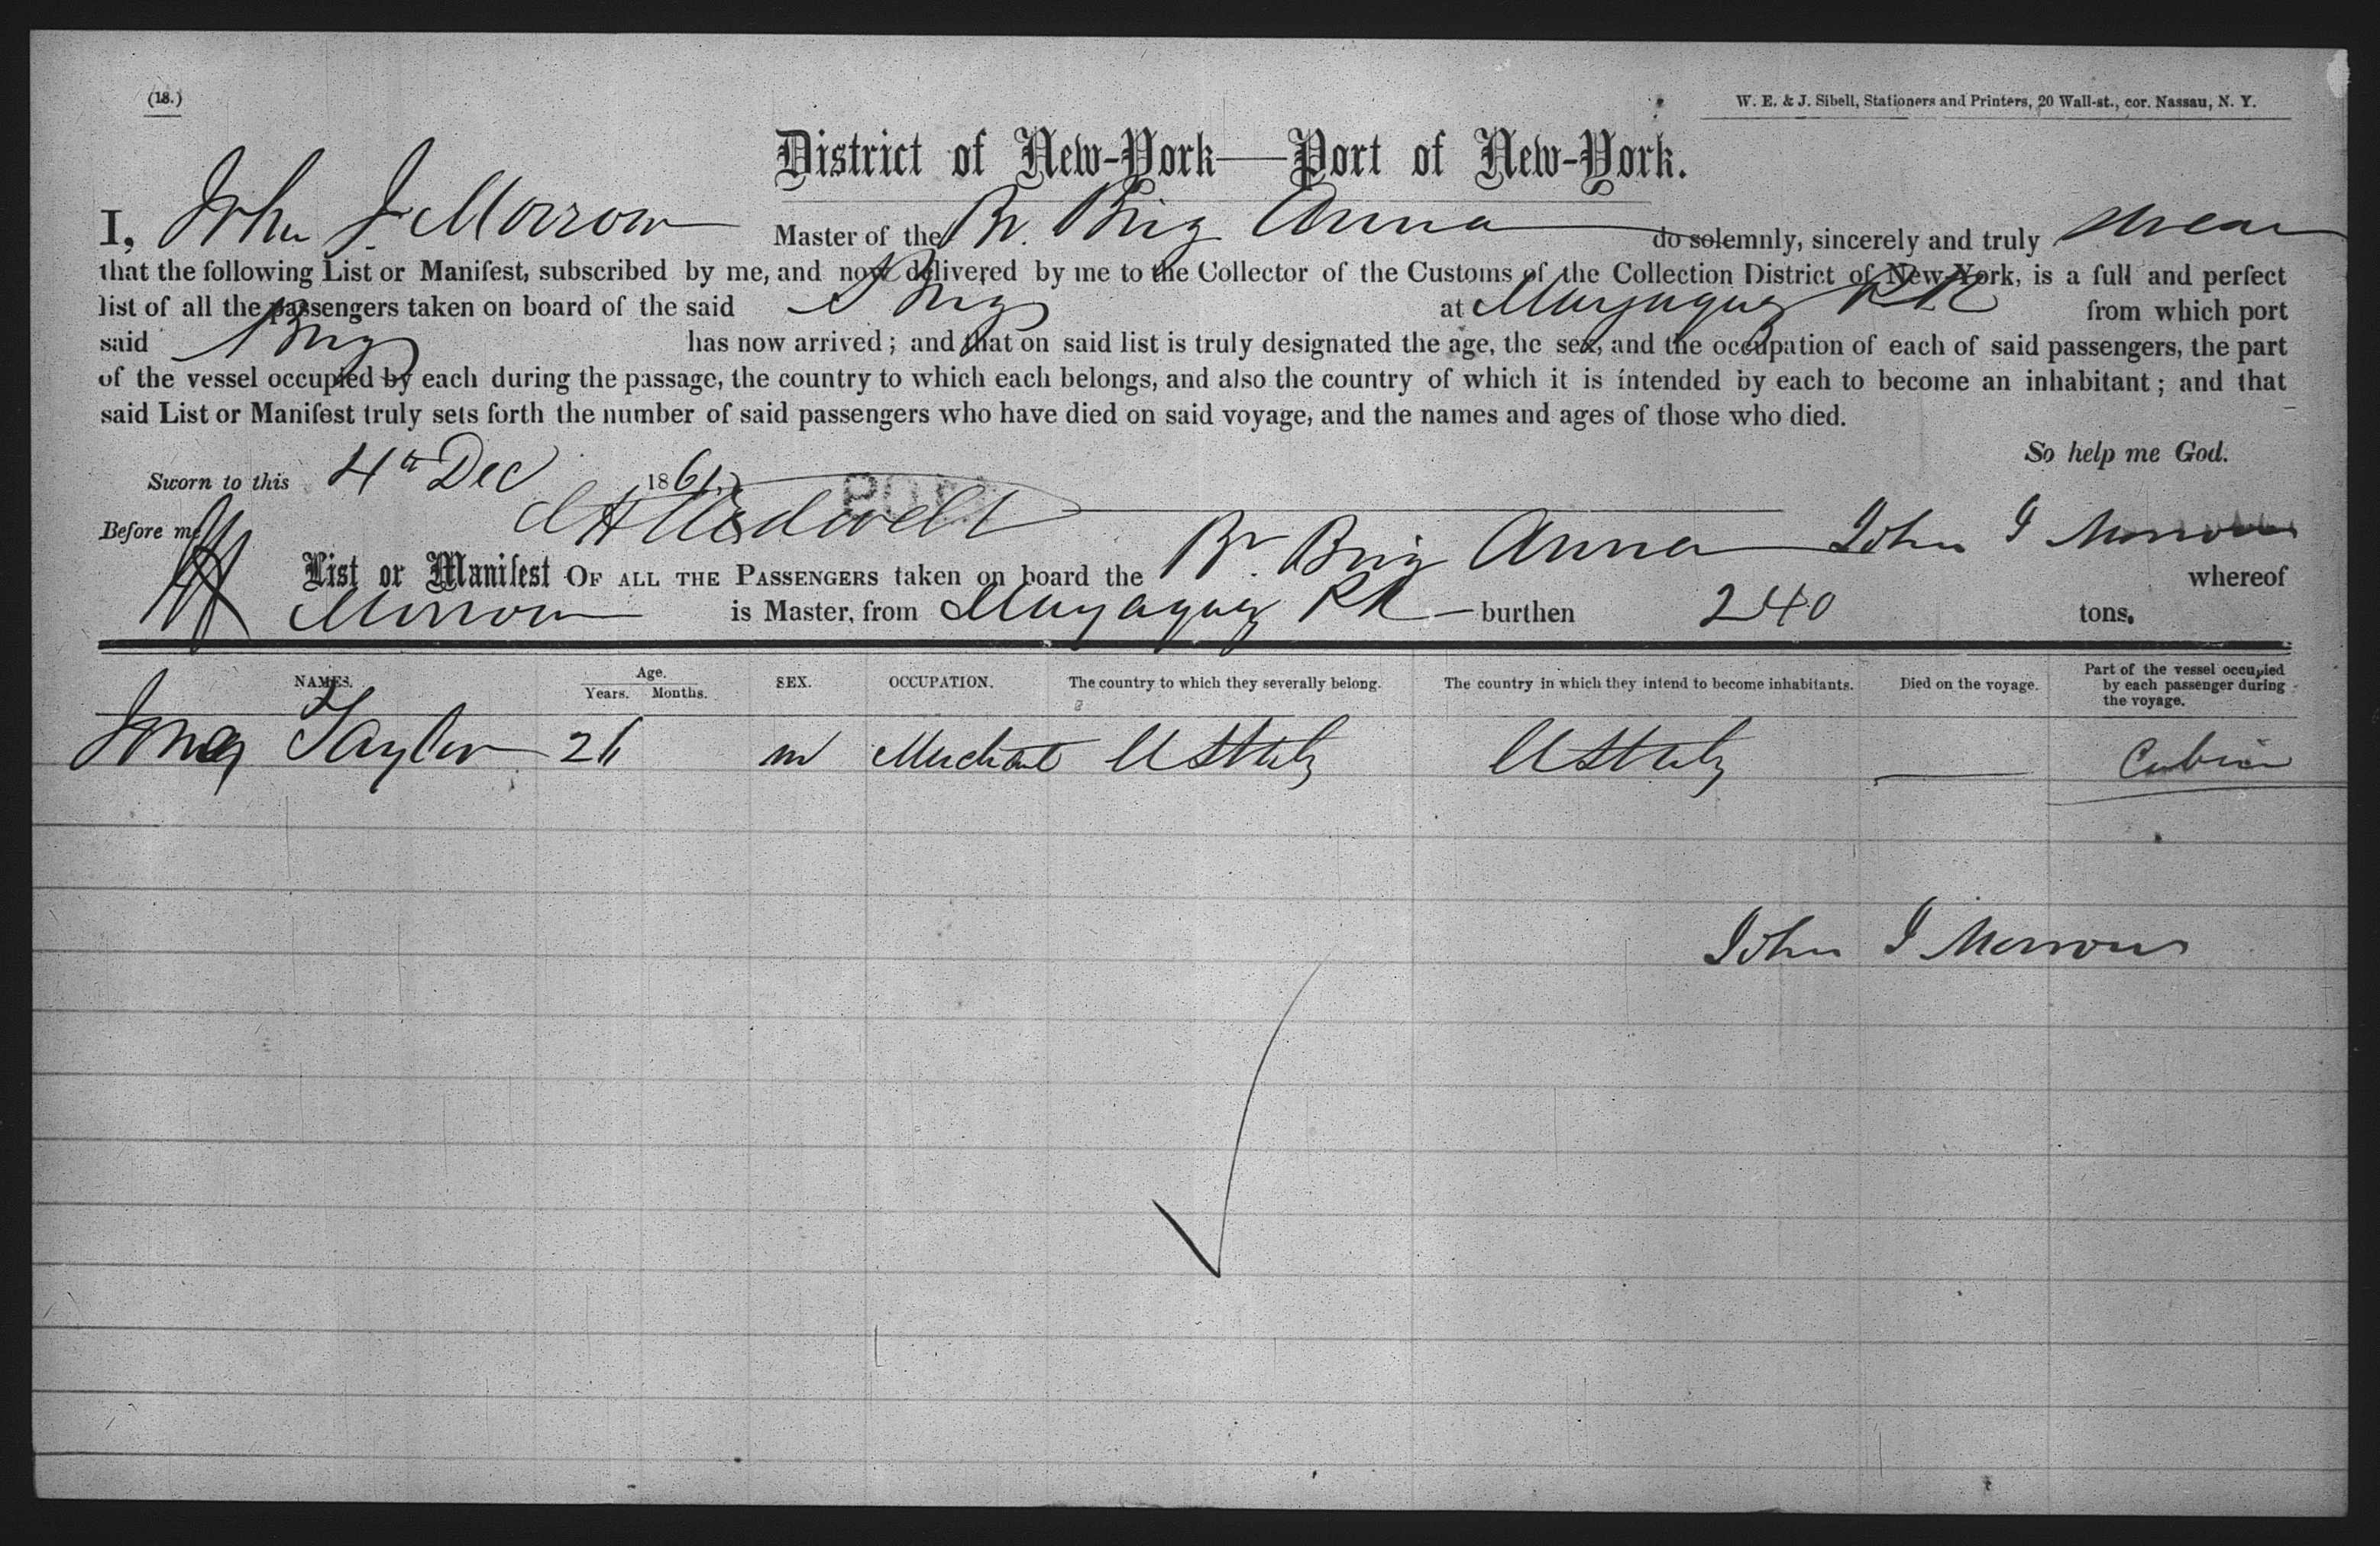 (18.)
W. E. & J. Sibell, Stationers and Printers, 20 Wall-st., cor. Nassau, N. Y.
District of New-York—Port of New-York.
I, John J. Morrow Master of the Br. Brig Anna do solemnly, sincerely and truly swear
that the following List or Manifest, subscribed by me, and now delivered by me to the Collector of the Customs of the Collection District of New-York, is a full and perfect
list of all the passengers taken on board of the said Brig at Mayaguez P R from which port
said Brig has now arrived; and that on said list is truly designated the age, the sex, and the occupation of each of said passengers, the part
of the vessel occupied by each during the passage, the country to which each belongs, and also the country of which it is intended by each to become an inhabitant; and that
said List or Manifest truly sets forth the number of said passengers who have died on said voyage, and the names and ages of those who died.
So help me God.
Sworn to this 4th Dec 1861
Before me John J Morrow
List or Manifest OF ALL THE PASSENGERS taken on board the Br. Brig Anna whereof
Morrow is Master, from Mayaguez P R burthen 240 tons.
NAMES. Age. Years. Months. SEX. OCCUPATION. The country to which they severally belong. The country in which they intend to become inhabitants. Died on the voyage. Part of the vessel occupied by each passenger during the voyage.
Taylor 26 m Merchant U States U States — Cabin
John J Morrow